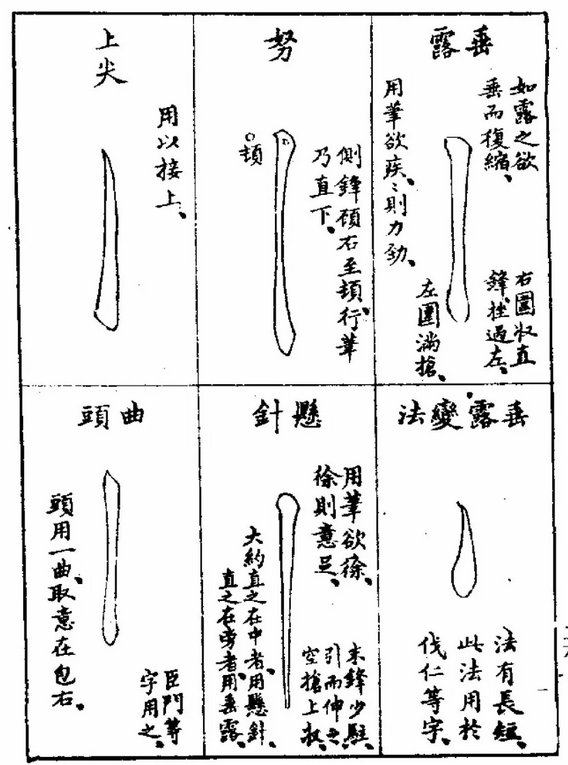 垂露
如露之欲
垂而復縮、
用筆欲疾、疾則力勁、
右圍收直
鋒拄過左、
左圍滿搶、
努
側鋒頓右至頓、行筆
乃直下、
頓
上尖
用以接上、
垂露變法
法有長短
此法用於
伐仁等字、
懸針
用筆欲徐、
徐則意足、
末鋒少駐、
引而伸之
空搶上收
大約直之在中者、用懸針
直之在旁者、用垂露
曲頭
頭用一曲、取意在包右、
臣門等
字用之、